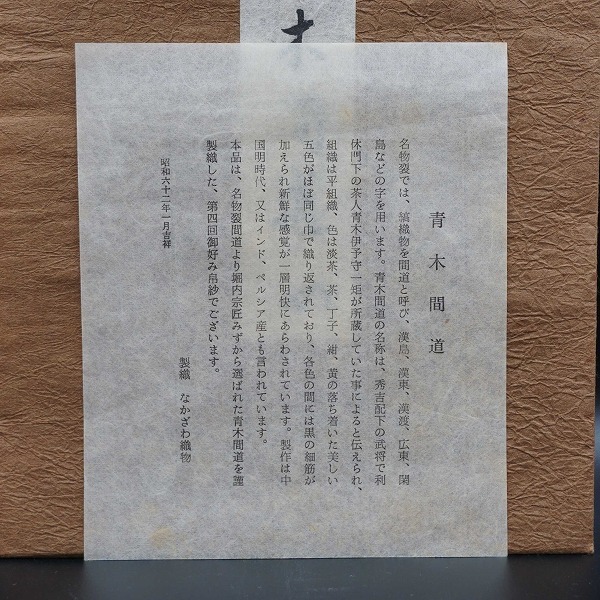 青木間道
名物裂では、縞織物を間道と呼び、漢島、漢東、漢渡、広東、閑
島などの字を用います。青木間道の名称は、秀吉配下の武将で利
休門下の茶人青木伊予守一矩が所蔵していた事によると伝えられ、
組織は平組織、色は淡茶、茶、丁子、紺、黄の落ち着いた美しい
五色がほぼ同じ巾で織り返されており、各色の間には黒の細筋が
加えられ新鮮な感覚が一層明快にあらわされています。製作は中
国明時代、又はインド、ペルシア産とも言われています。
本品は、名物裂間道より堀内宗匠みずから選ばれた青木間道を謹
製織した、第四回御好み帛紗でございます。
昭和六十二年一月吉祥
製織 なかざわ織物